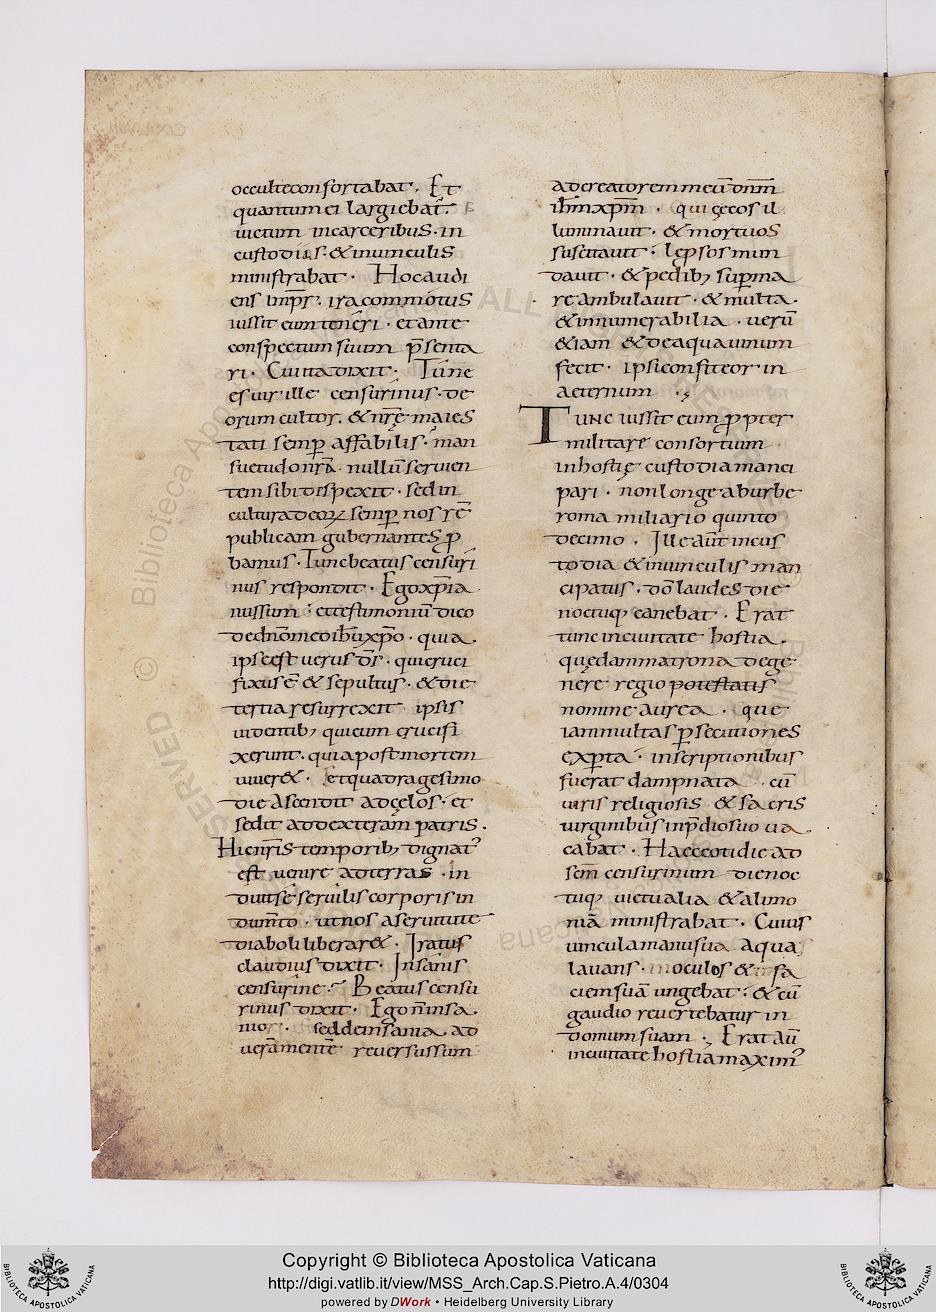 occulteconfortabat. Et
quantum ei largiebat̄.
uictum incarceribus. in
custodiis. &inuinculis
ministrabat. Hocaudi
ens imp̄r. iracommotus
iussit eum teneri. etante
conspectum suum p̄senta
ri. Cuiita dixit. Tune
es uir ille censurinus. de
orum cultor. & nr̄ę maies
tati semp̱ affabilis. man
suetudo nr̄a. nullū seruien
tem sibi dispexit. sed in
cultura deoꝝ semp̱ nos rē
publicam gubernantes ꝓ
bamus. Tunc beatus censuri
nus respondit. Ego xp̄ia
nus sum. et testimoniū dico
de dn̄o meo ih̄u xp̄o. quia.
ipse est uerus d̄s. qui cruci
fixus ē & sepultus. & die
tertia resurrexit. ipsis
uidentib; qui eum crucifi
xerunt. quia post mortem
uiuer&. Et quadragesimo
die ascendit ad cęlos. et
sedit ad dexteram patris.
Hic nr̄is temporib; dignat᾽
est uenire ad terras. in
duit se seruilis corporis in
dum̄to. ut nos a seruitute
diaboli liberar&. Iratus
claudius dixit. Insanis
censurine. Beatus censu
rinus dixit. Ego n̄ insa.
nior. sed de insania. ad
ueram mente reuersus sum
ad creatorem meū dn̄m
ih̄m xp̄m. qui cęcos il
luminauit. & mortuos
suscitauit. lęprosos mun
dauit. & pedib; sup̱ ma
re ambulauit. & multa.
& innumerabilia. uerū
&iam & de aqua uinum
fecit. ipsi confiteor in
aeternum.
Tunc iussit eum ꝓpter
militare consortium
in hostię custodia manci
pari. non longe ab urbe
roma miliario quinto
decimo. Ille aūt in cus
todia & in uinculis man
cipatus. dō laudes die
noctuq; canebat. Erat
tunc in ciuitate hostia.
quędam matrona de ge
nere regio potestatis
nomine aurea. que
iam multas p̱secutiones
exp̱ta. in scriptionibus
fuerat dampnata. cū
uiris religiosis & sacris
uirginibus in p̄dio suo ua
cabat. Haec cotidie ad
sc̄m censurinum die noc
tuq; uictualia & alimo
niā ministrabat. Cuius
uincula manu sua aqua
lauans. in oculos &
ciem suā ungebat. & cū
gaudio reuertebatur in
domum suam. Erat aū
in ciuitate hostia maxim᾽
Copyright © Biblioteca Apostolica Vaticana
http://digi.vatlib.it/view/MSS_Arch.Cap.S.Pietro.A.4/0304
powered by DWork • Heidelberg University Library